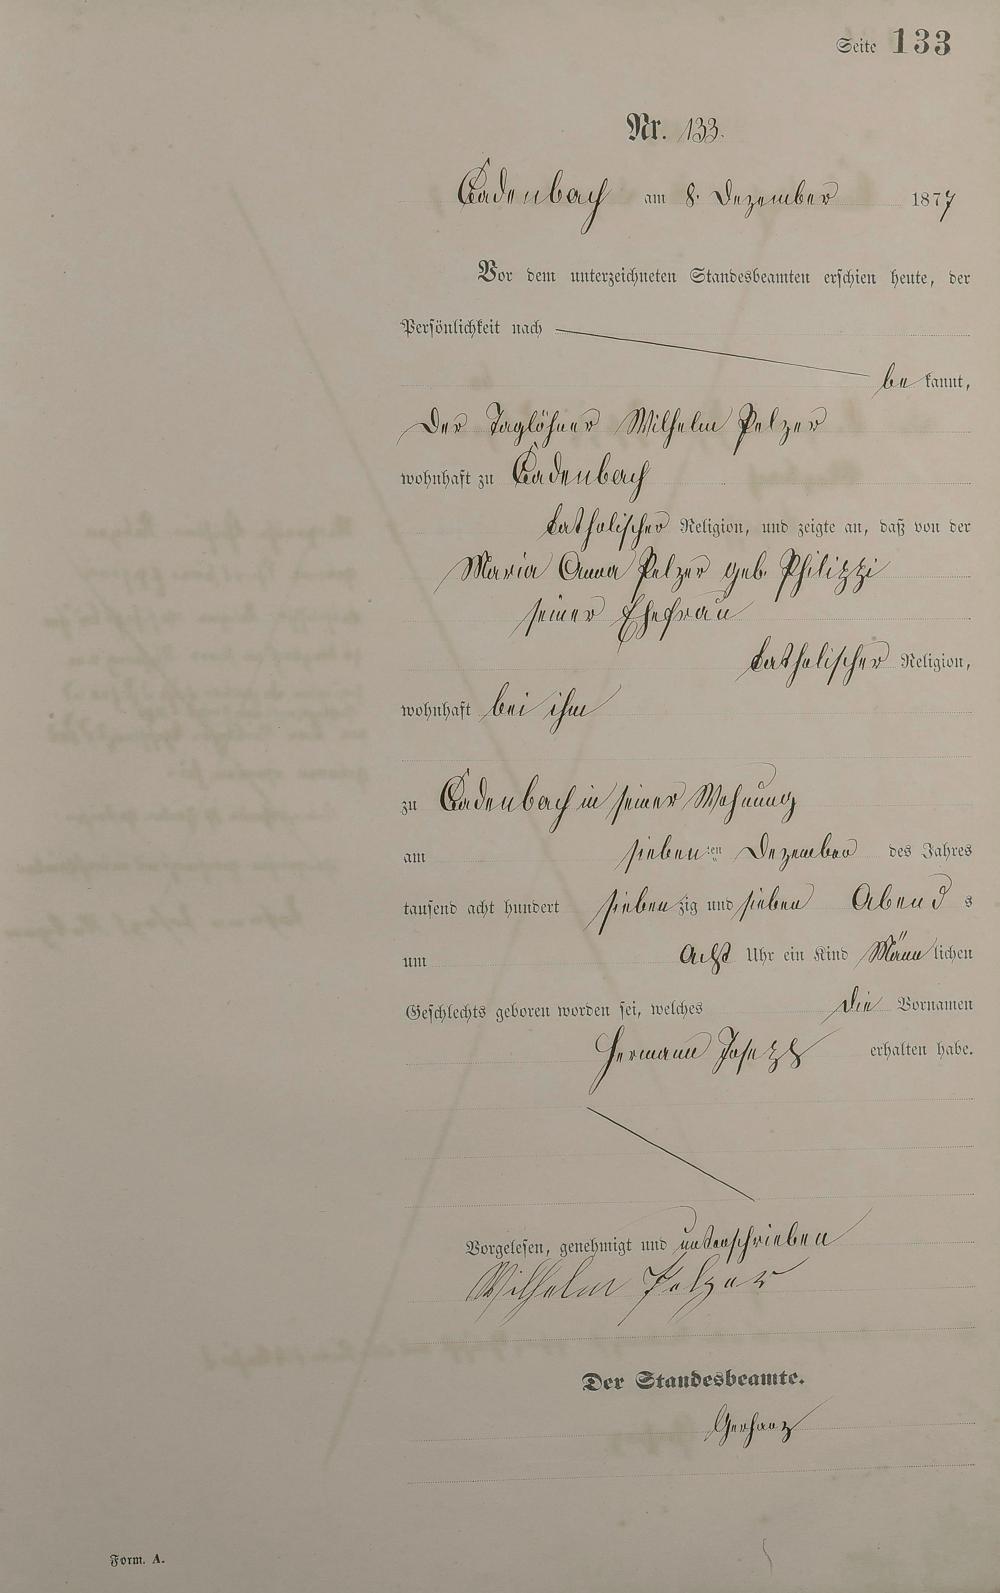 Seite 133
Nr. 133.
Cadenbach am 8. Dezember 1877
Vor dem unterzeichneten Standesbeamten erschien heute, der
Persönlichkeit nach
be kannt,
Der Taglöhner Wilhelm Pelzer
wohnhaft zu Cadenbach
katholischer Religion, und zeigte an, daß von der
Maria Anna Pelzer geb. Philippi
seiner Ehefrau
katholischer Religion,
wohnhaft bei ihm
zu Cadenbach in seiner Wohnung
am siebenten Dezember des Jahres
tausend acht hundert siebenzig und sieben Abend s
um Acht Uhr ein Kind Männlichen
Geschlechts geboren worden sei, welches die Vornamen
Hermann Joseph erhalten habe.
Vorgelesen, genehmigt und unterschrieben
Wilhelm Pelzer
Der Standesbeamte.
Gerharz
Form. A.